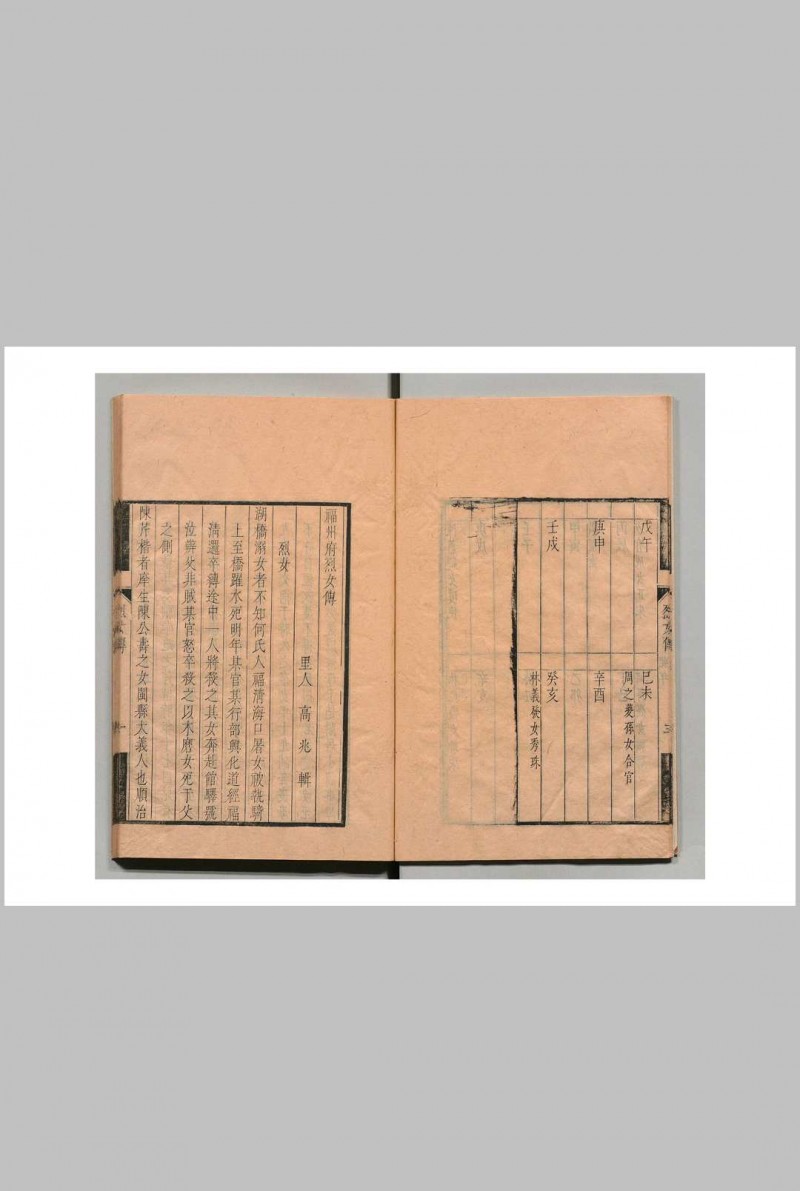 戊午
己未
周之夔孫女合官
庚申
辛酉
壬戌
癸亥
林義發女秀珠
烈女傳
三
福州府烈女傳
里人 高 兆 輯
烈女
湖橋溺女者不知何氏人福清海口屠女被執騎
上至橋躍水死明年某官某行部興化道經福
清還卒縛途中一人將殺之其女奔赴館驛號
泣辨父非賊某官怒卒殺之以木磨女死于父
之側
陳芥楷者庠生陳公壽之女閩縣大義人也順治
烈女傳
一